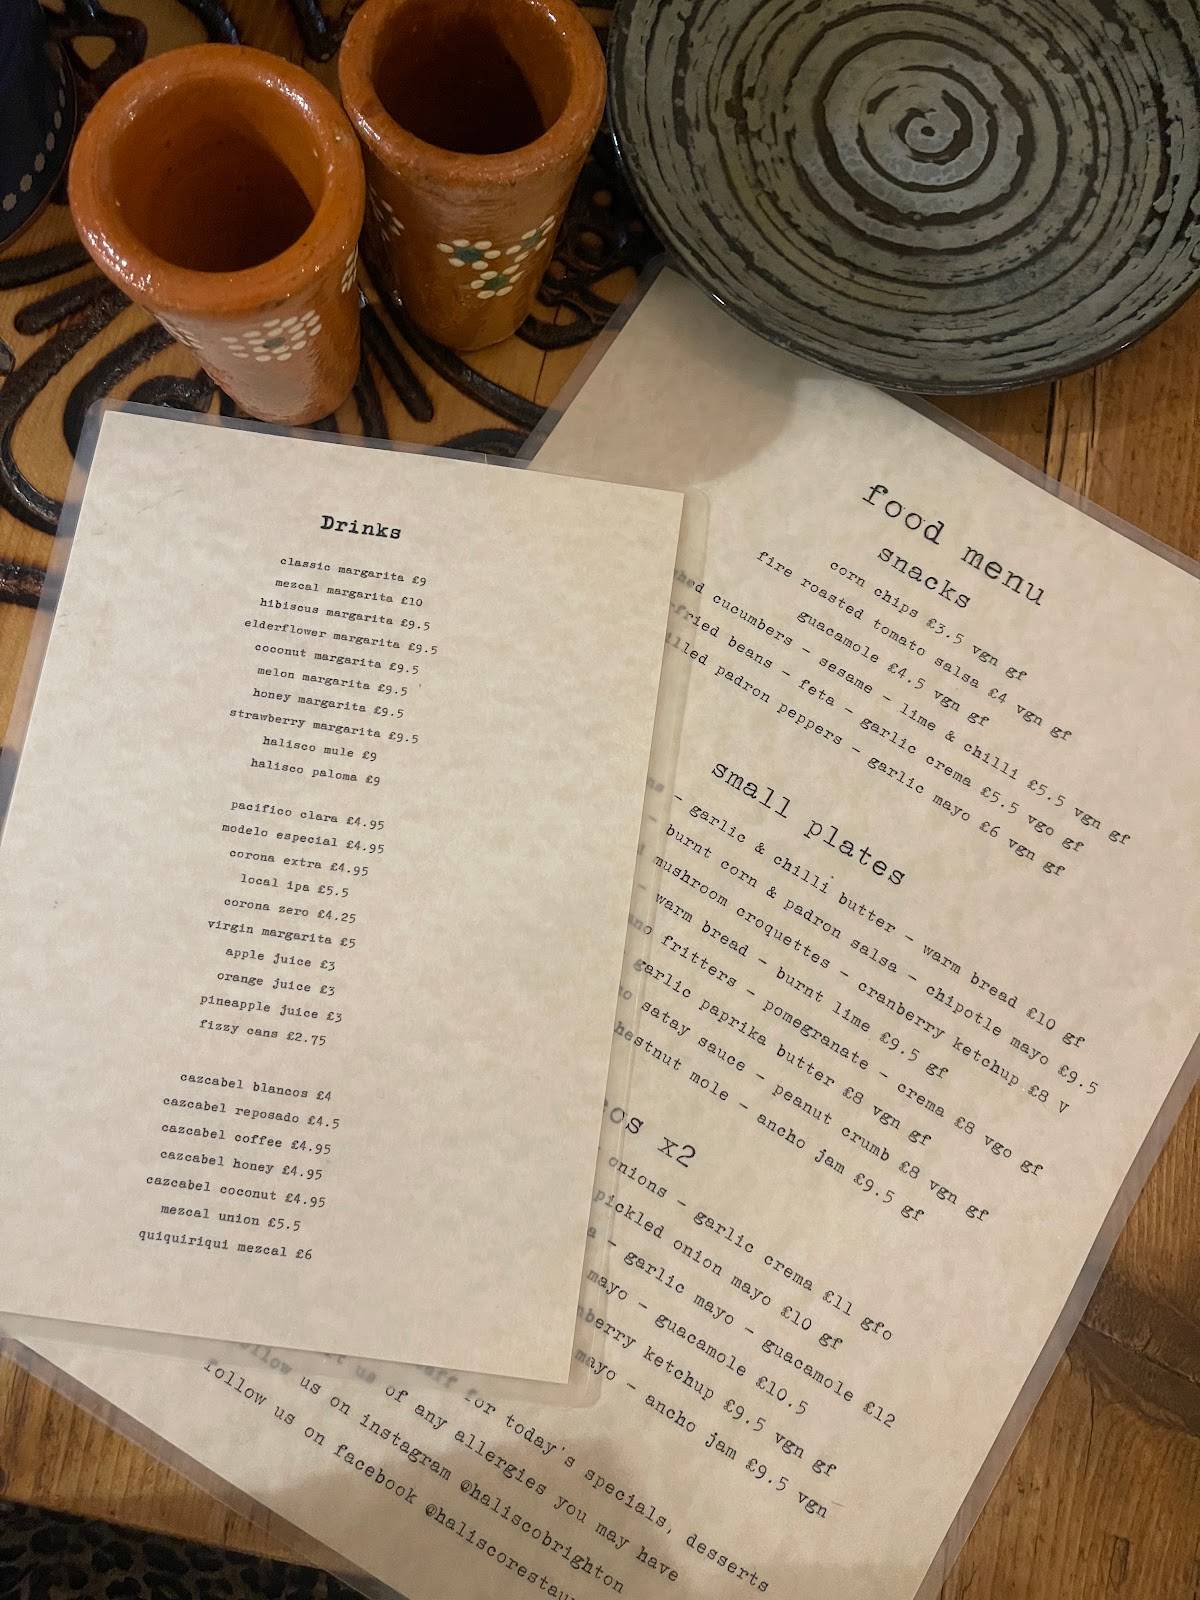 Drinks
classic margarita £9
mezcal margarita £10
hibiscus margarita £9.5
elderflower margarita £9.5
coconut margarita £9.5
melon margarita £9.5
honey margarita £9.5
strawberry margarita £9.5
halisco mule £9
halisco paloma £9
pacifico clara £4.95
modelo especial £4.95
corona extra £4.95
local ipa £5.5
corona zero £4.25
virgin margarita £5
apple juice £3
orange juice £3
pineapple juice £3
fizzy cans £2.75
cazcabel blancos £4
cazcabel reposado £4.5
cazcabel coffee £4.95
cazcabel honey £4.95
cazcabel coconut £4.95
mezcal union £5.5
quiquiriqui mezcal £6
food menu
snacks
corn chips £3.5 vgn gf
fire roasted tomato salsa £4 vgn gf
guacamole £4.5 vgn gf
cucumbers - sesame - lime & chilli £5.5 vgn gf
beans - feta - garlic crema £5.5 vgo gf
padron peppers - garlic mayo £6 vgn gf
small plates
- garlic & chilli butter - warm bread £10 gf
- burnt corn & padron salsa - chipotle mayo £9.5
mushroom croquettes - cranberry ketchup £8 V
- warm bread - burnt lime £9.5 gf
fritters - pomegranate - crema £8 vgo gf
garlic paprika butter £8 vgn gf
satay sauce - peanut crumb £8 vgn gf
mole - ancho jam £9.5 gf
x2
onions - garlic crema £11 gfo
pickled onion mayo £10 gf
- garlic mayo - guacamole £12
mayo - guacamole £10.5
ketchup £9.5 vgn gf
mayo - ancho jam £9.5 vgn
for today's specials, desserts
us of any allergies you may have
us on instagram @haliscobrighton
follow us on facebook